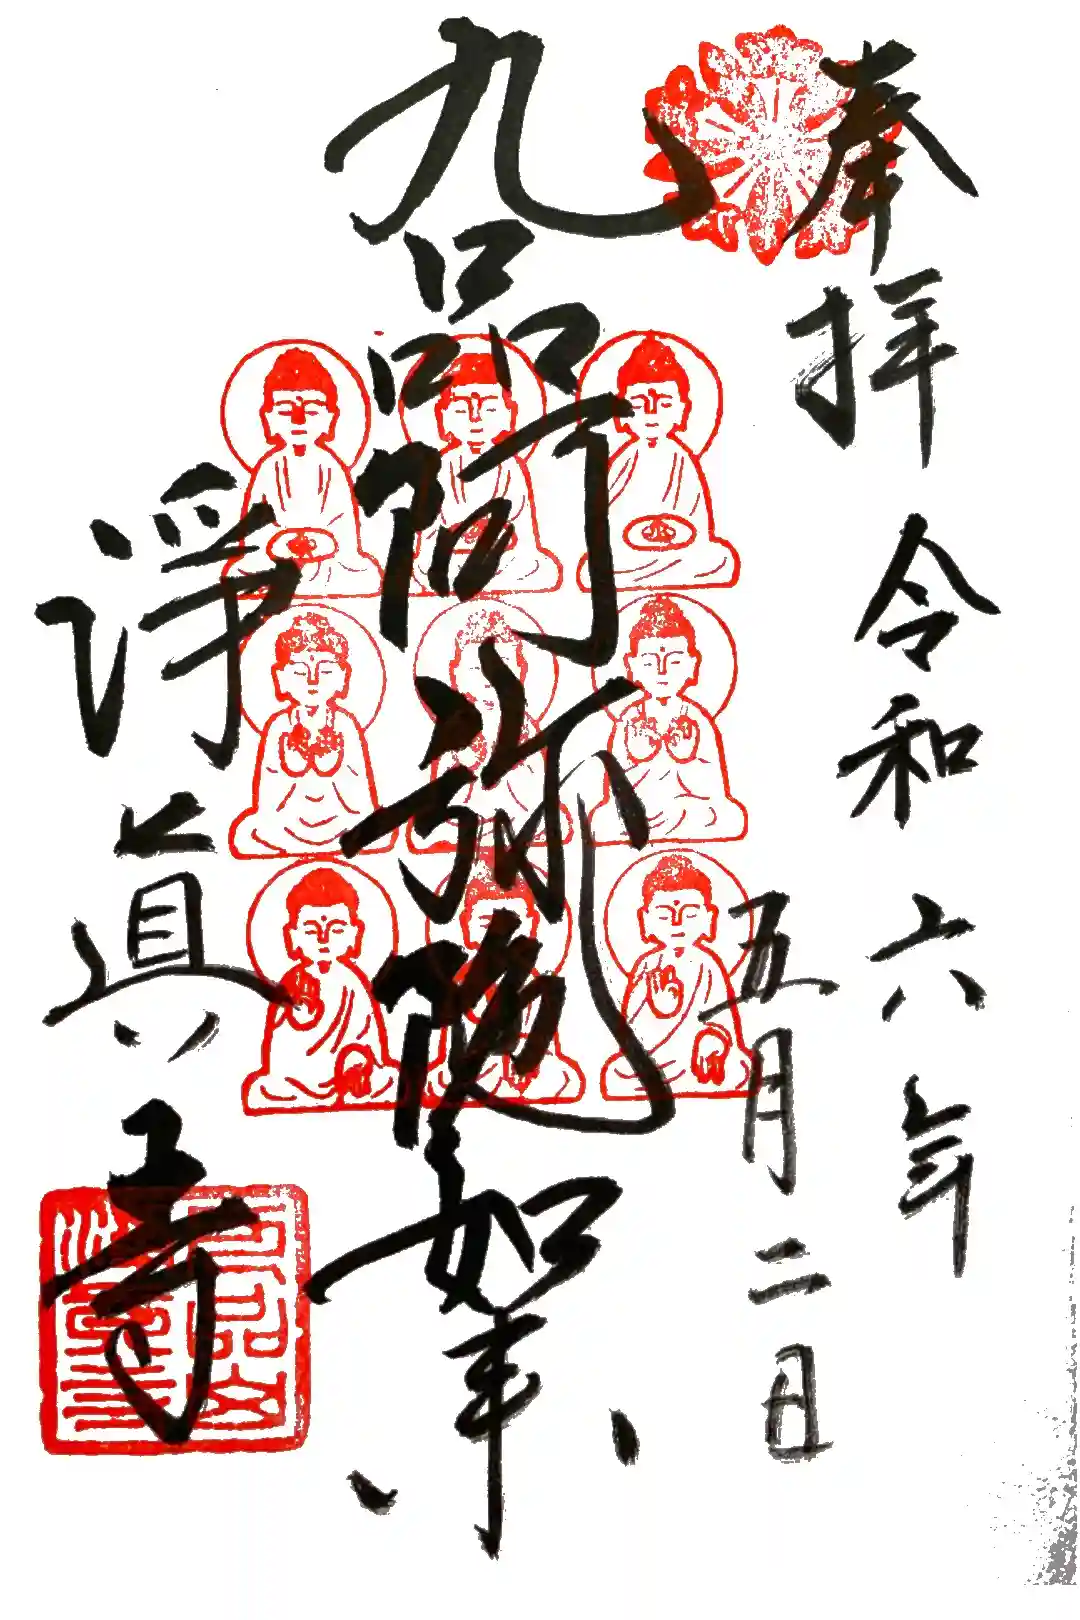 奉拝 令和六年
五月二日
九品阿弥陀如来
淨眞寺